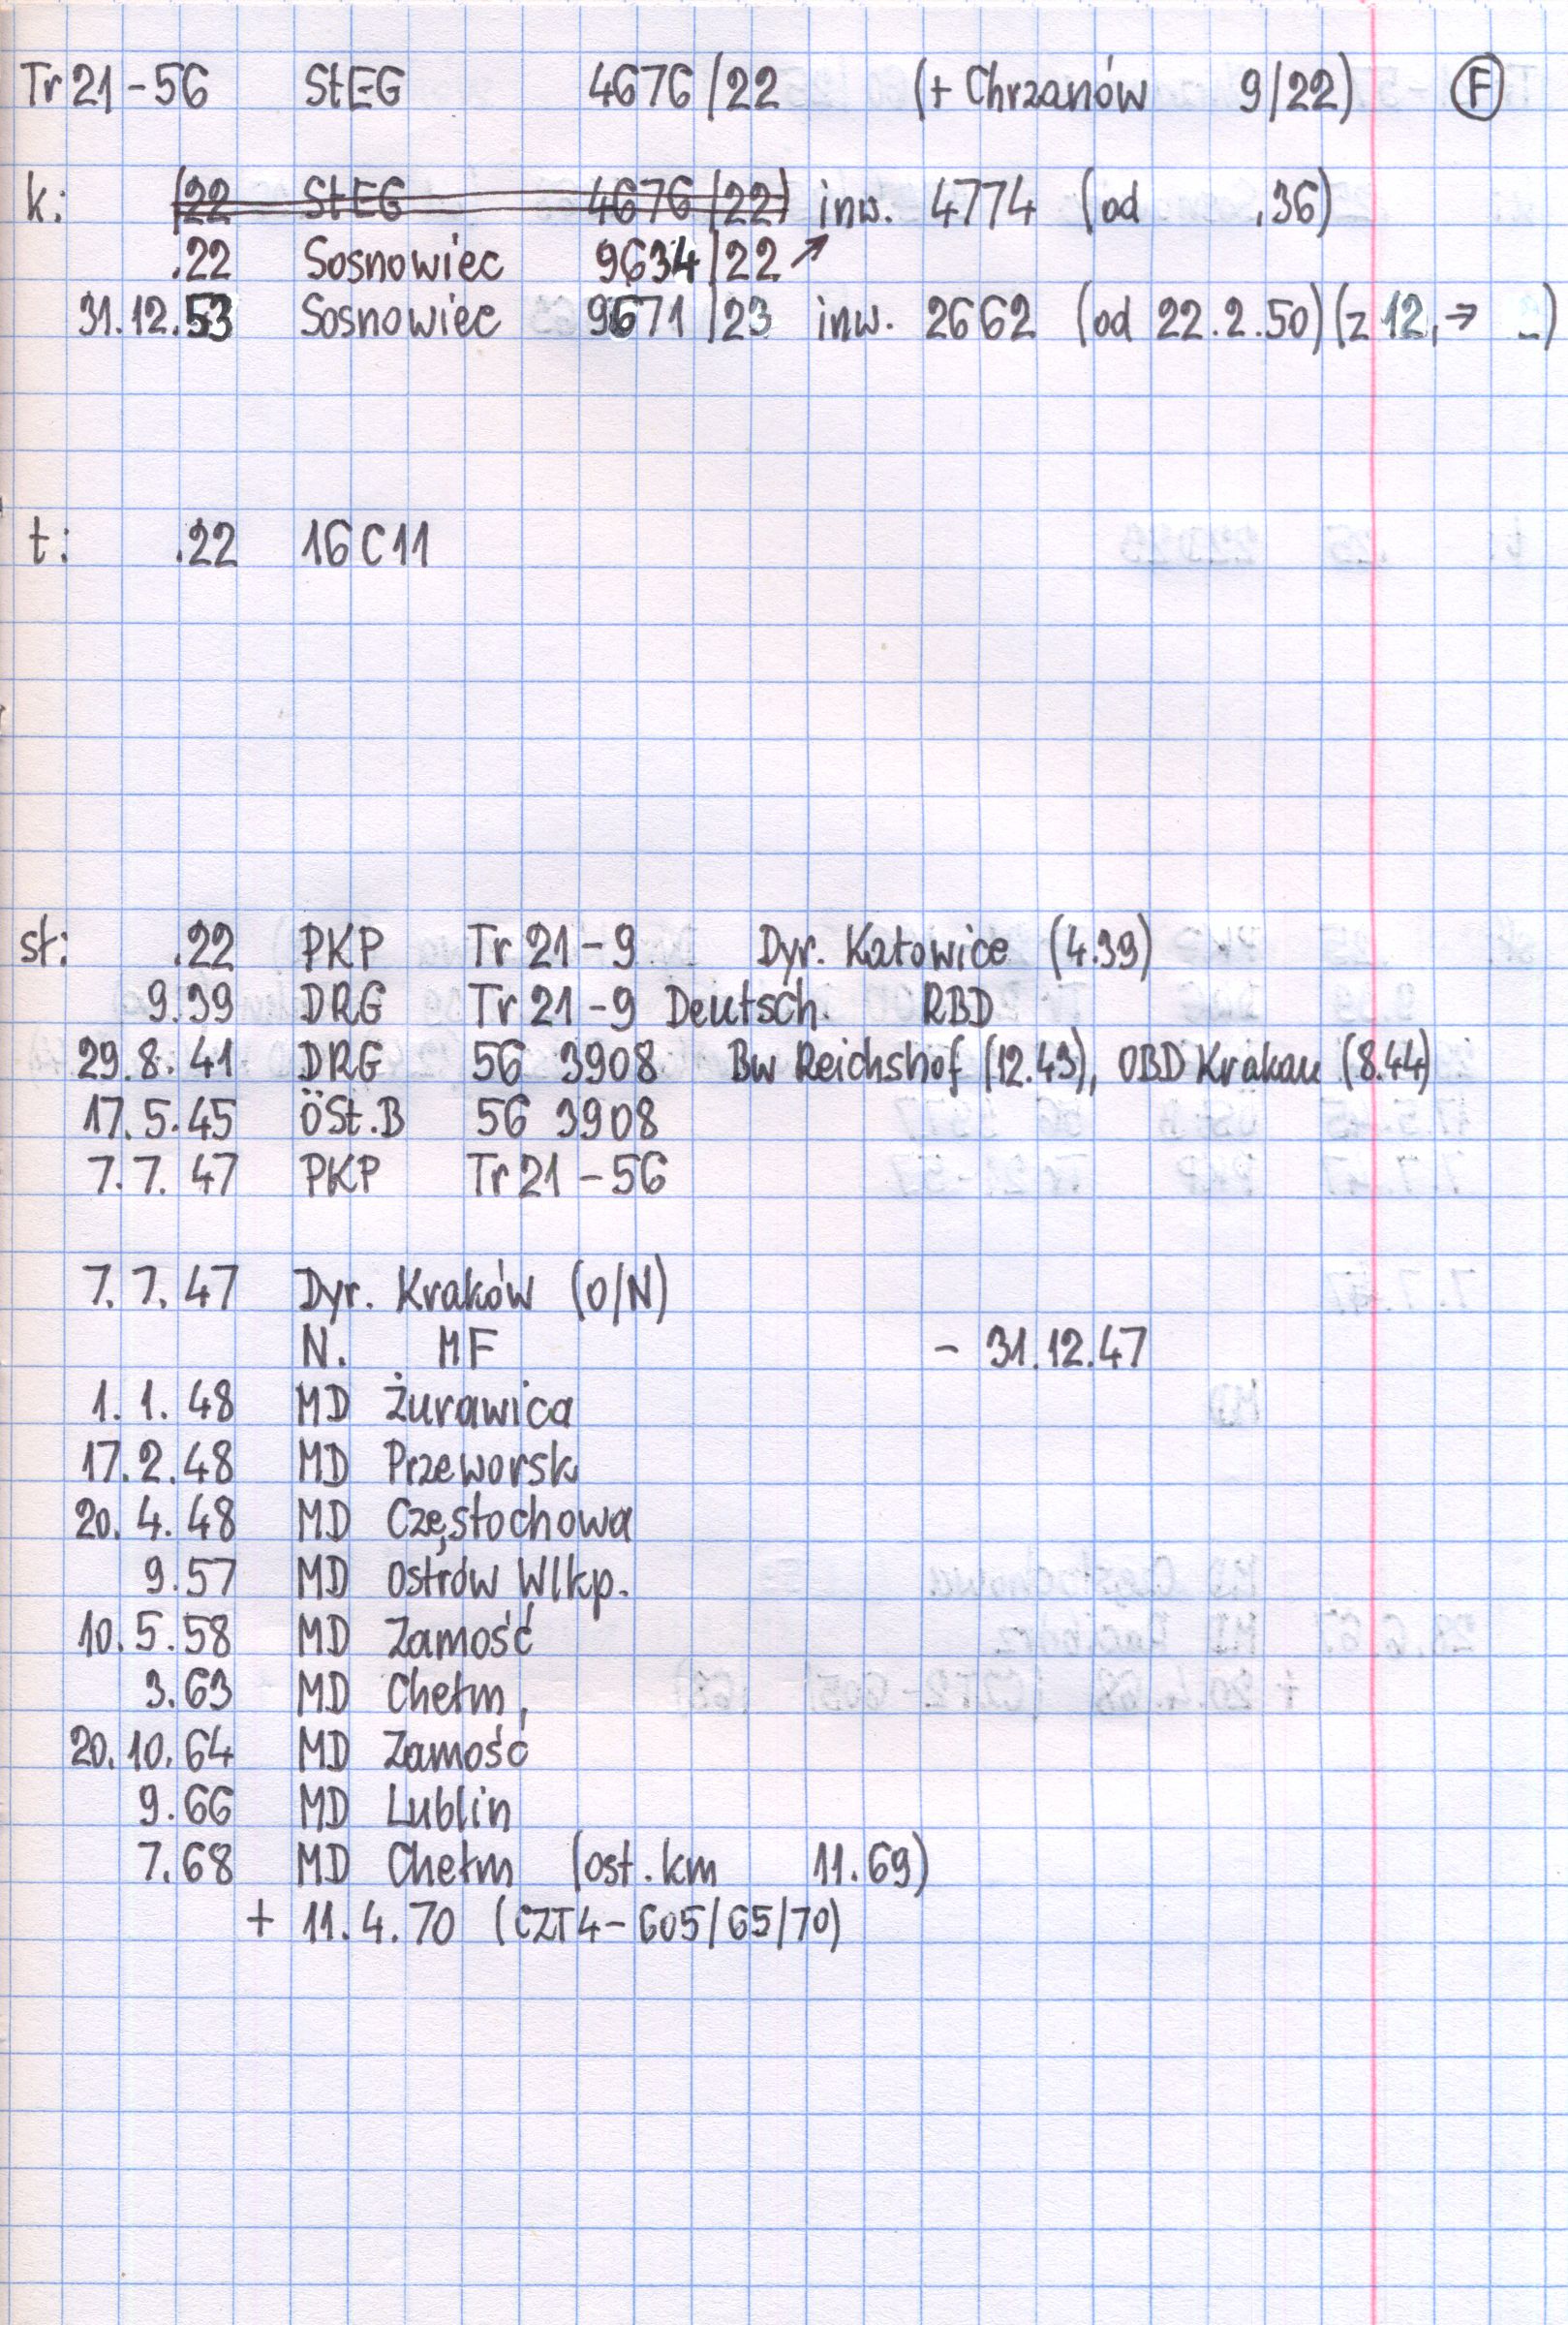 Tr 21 - 56 StEG 4676/22 (+ Chrzanów 9/22) F
k: (22 StEG 4676/22) inw. 4774 (od .36)
.22 Sosnowiec 9634/22 ↗
31.12.53 Sosnowiec 9671/23 inw. 2662 (od 22.2.50) (z 12, → _)
t: .22 16C11
st: .22 PKP Tr 21 - 9 Dyr. Katowice (4.39)
9.39 DRG Tr 21 - 9 Deutsch. RBD
29.8.41 DRG 56 3908 Bw Reichshof (12.43), OBD Krakau (8.44)
17.5.45 ÖSt.B 56 3908
7.7.47 PKP Tr 21 - 56
7.7.47 Dyr. Kraków (O/N)
N. MF - 31.12.47
1.1.48 MD Żurawica
17.2.48 MD Przeworsk
20.4.48 MD Częstochowa
9.57 MD Ostrów Wlkp.
10.5.58 MD Zamość
3.63 MD Chełm
20.10.64 MD Zamość
9.66 MD Lublin
7.68 MD Chełm (ost. km 11.69)
+ 11.4.70 (CZT4-605/65/70)